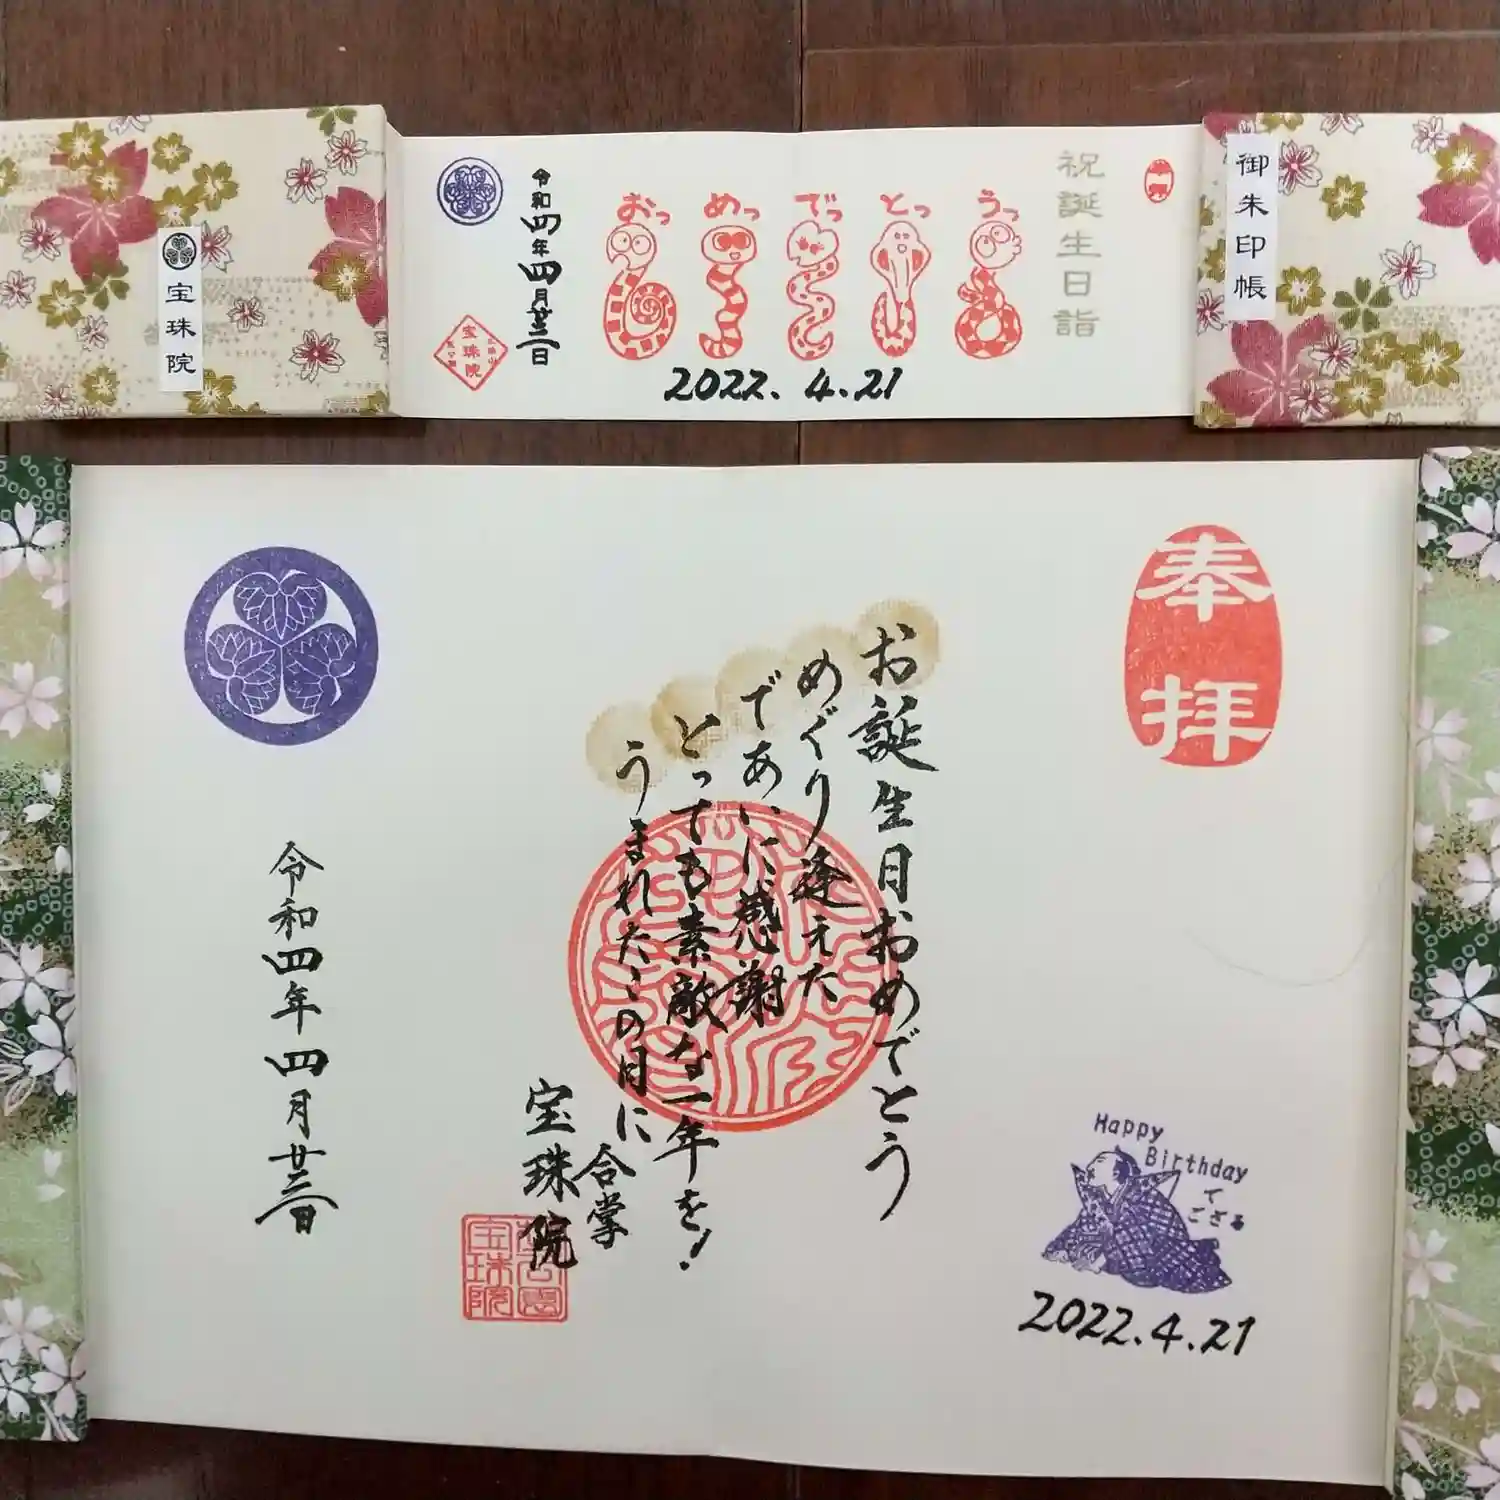 御朱印帳
祝誕生日詣
おっ
めっ
でっ
とっ
うっ
2022. 4.21
令和四年四月廿三日
宝珠院
宝珠院
奉拝
お誕生日おめでとう
めぐり逢えた
であいに感謝
とっても素敵な一年を!
うまれたこの日に
合掌
宝珠院
宝珠院
令和四年四月廿三日
Happy
Birthday
で
ござる
2022.4.21